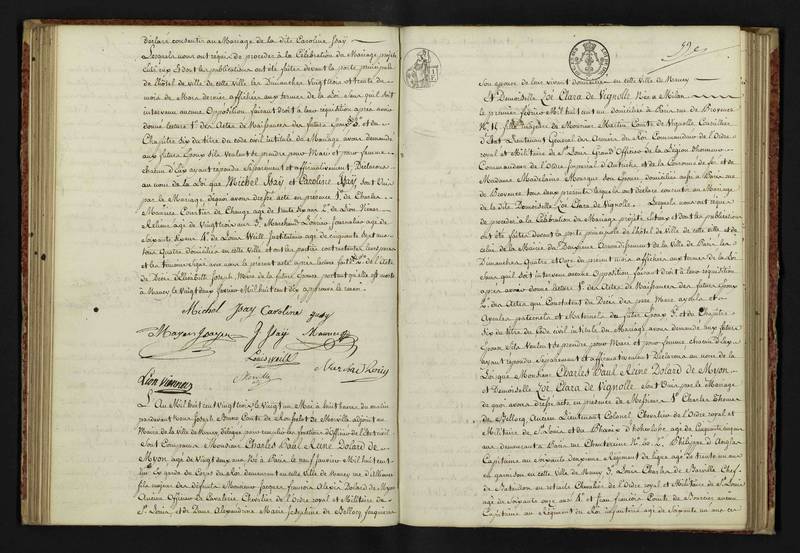 déclaré consentir au Mariage de la dite Caroline Isaÿ
Lesquels nous ont requis de procéder à la Célébration du Mariage projeté
entr'eux & dont les publications ont été faites devant la porte principale
de l'hôtel de ville de cette ville, les Dimanches Vingt trois et trente du
mois de Mars dernier affichées aux termes de la Loi sans qu'il soit
intervenu aucune Opposition, faisant droit à leur réquisition après avoir
donné lecture 1° des Actes de Naissances des futurs Epoux 3° et du
Chapitre Six du titre du code civil intitulé du Mariage avons demandé
aux futurs Epoux s'ils veulent se prendre pour Mari et pour femme
chacun d'Eux ayant répondu Séparément et affirmativement, Déclarons
au nom de la Loi que Michel Isaÿ et Caroline Isaÿ sont Unis
par le Mariage, de quoi avons dressé acte en présence 1° de Charles
Maurice Courtier de Change âgé de trente
âgé de Vingt trois ans 3° Marchand Journalier âgé de
Soixante 4° de Louis Weill Instituteur âgé de cinquante sept ans
tous Quatre domiciliés en cette ville et ont les parties contractantes
et les témoins signé avec nous le présent acte après lecture 2° de l'Acte
de Décès d'Elisabeth Joseph, Mère de la future Epouse
à Nancy le Vingt deux Janvier Mil huit cent Dix approuvé le renvoi.
Michel Isaÿ Caroline Isaÿ
Mayer Isaye J Isaÿ Maurice
Louis weill
Lion
L'An Mil huit cent Vingt trois le Vingt un Mai à huit heures du matin
pardevant Nous Joseph Bruno Comte de Morville adjoint au
Maire de la Ville de Nancy Délégué pour remplir les fonctions d'Officier de l'Etat civil
sont Comparus Monsieur Charles Paul René Dolard de
Myon âgé de Vingt deux ans Né à Paris le neuf Janvier Mil huit cent
garde du Corps du Roi demeurant en cette ville de Nancy rue d'alliance
fils majeur des défunts Monsieur Jacques françois Alexis Dolard de Myon
Ancien Officier de Cavalerie Chevalier de l'Ordre royal et Militaire de
St. Louis, et de Dame Alexandrine Marie Josephine de Bellocq
Son épouse de leur vivant domiciliés en cette Ville de Nancy
& Demoiselle Zoé Clara de Vignolle Née à Milan
le premier février Mil huit cent domiciliée à Paris rue de Provence
fille majeure de Monsieur Martin Comte de Vignolle Conseiller
d'Etat Lieutenant Général des Armées du Roi Commandeur de l'Ordre
royal et Militaire de St. Louis Grand Officier de la Légion d'honneur
Commandeur de l'Ordre Impérial d'Autriche et de la Couronne de fer et de
Madame Madelaine Monique son Epouse domiciliés aussi à Paris rue
de Provence tous deux présents lesquels ont déclaré consentir au Mariage
de la dite Demoiselle Zoé Clara de Vignolle. Lesquels nous ont requis
de procéder à la Célébration du Mariage projeté entr'eux & dont les publications
ont été faites devant la porte principale de l'hôtel de Ville de cette ville et de
celui de la Mairie du Deuxième Arrondissement de la Ville de Paris les
Dimanches Quatre et Onze du présent mois affichées aux termes de la Loi
sans qu'il soit intervenu aucune Opposition faisant droit à leur réquisition
après avoir donné lecture 1° des Actes de Naissances des futurs Epoux
2° des Actes qui Constatent du Décès des père Mère ayeuls et
Ayeules paternels et Maternels du futur Epoux 3° et du Chapitre
Six du titre du Code civil intitulé du Mariage avons demandé aux futurs
Epoux s'ils Veulent se prendre pour Mari et pour femme chacun d'eux
ayant répondu Séparément et affirmativement Déclarons au nom de la
Loi que Monsieur Charles Paul René Dolard de Myon
et Demoiselle Zoé Clara de Vignolle sont Unis par le Mariage
de quoi avons dressé acte en présence de Messieurs 1° Charles Etienne
de Bellocq, Ancien Lieutenant Colonel Chevalier de l'Ordre royal et
Militaire de St. Louis et du Phénix d'hohenlohe âgé de Cinquante
ans demeurant à Paris 2° Philippe d'Anglars
Capitaine au Soixante Deuxième Régiment de ligne âgé de trente un ans
en garnison en cette Ville de Nancy 3° Louis Charles de Bainville Chef
de Bataillon en retraite Chevalier de l'Ordre royal et Militaire de St. Louis
âgé de Soixante onze ans 4° et Jean françois Comte de Bourcier ancien
Capitaine au Régiment du Roi infanterie âgé de Soixante un ans